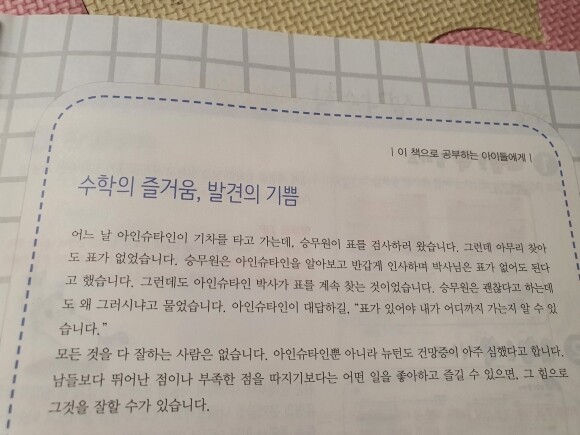 | 이 책으로 공부하는 아이들에게 |
수학의 즐거움, 발견의 기쁨
어느 날 아인슈타인이 기차를 타고 가는데, 승무원이 표를 검사하러 왔습니다. 그런데 아무리 찾아
도 표가 없었습니다. 승무원은 아인슈타인을 알아보고 반갑게 인사하며 박사님은 표가 없어도 된다
고 했습니다. 그런데도 아인슈타인 박사가 표를 계속 찾는 것이었습니다. 승무원은 괜찮다고 하는데
도 왜 그러시냐고 물었습니다. 아인슈타인이 대답하길, “표가 있어야 내가 어디까지 가는지 알 수 있
습니다.”
모든 것을 다 잘하는 사람은 없습니다. 아인슈타인뿐 아니라 뉴턴도 건망증이 아주 심했다고 합니다.
남들보다 뛰어난 점이나 부족한 점을 따지기보다는 어떤 일을 좋아하고 즐길 수 있으면, 그 힘으로
그것을 잘할 수가 있습니다.